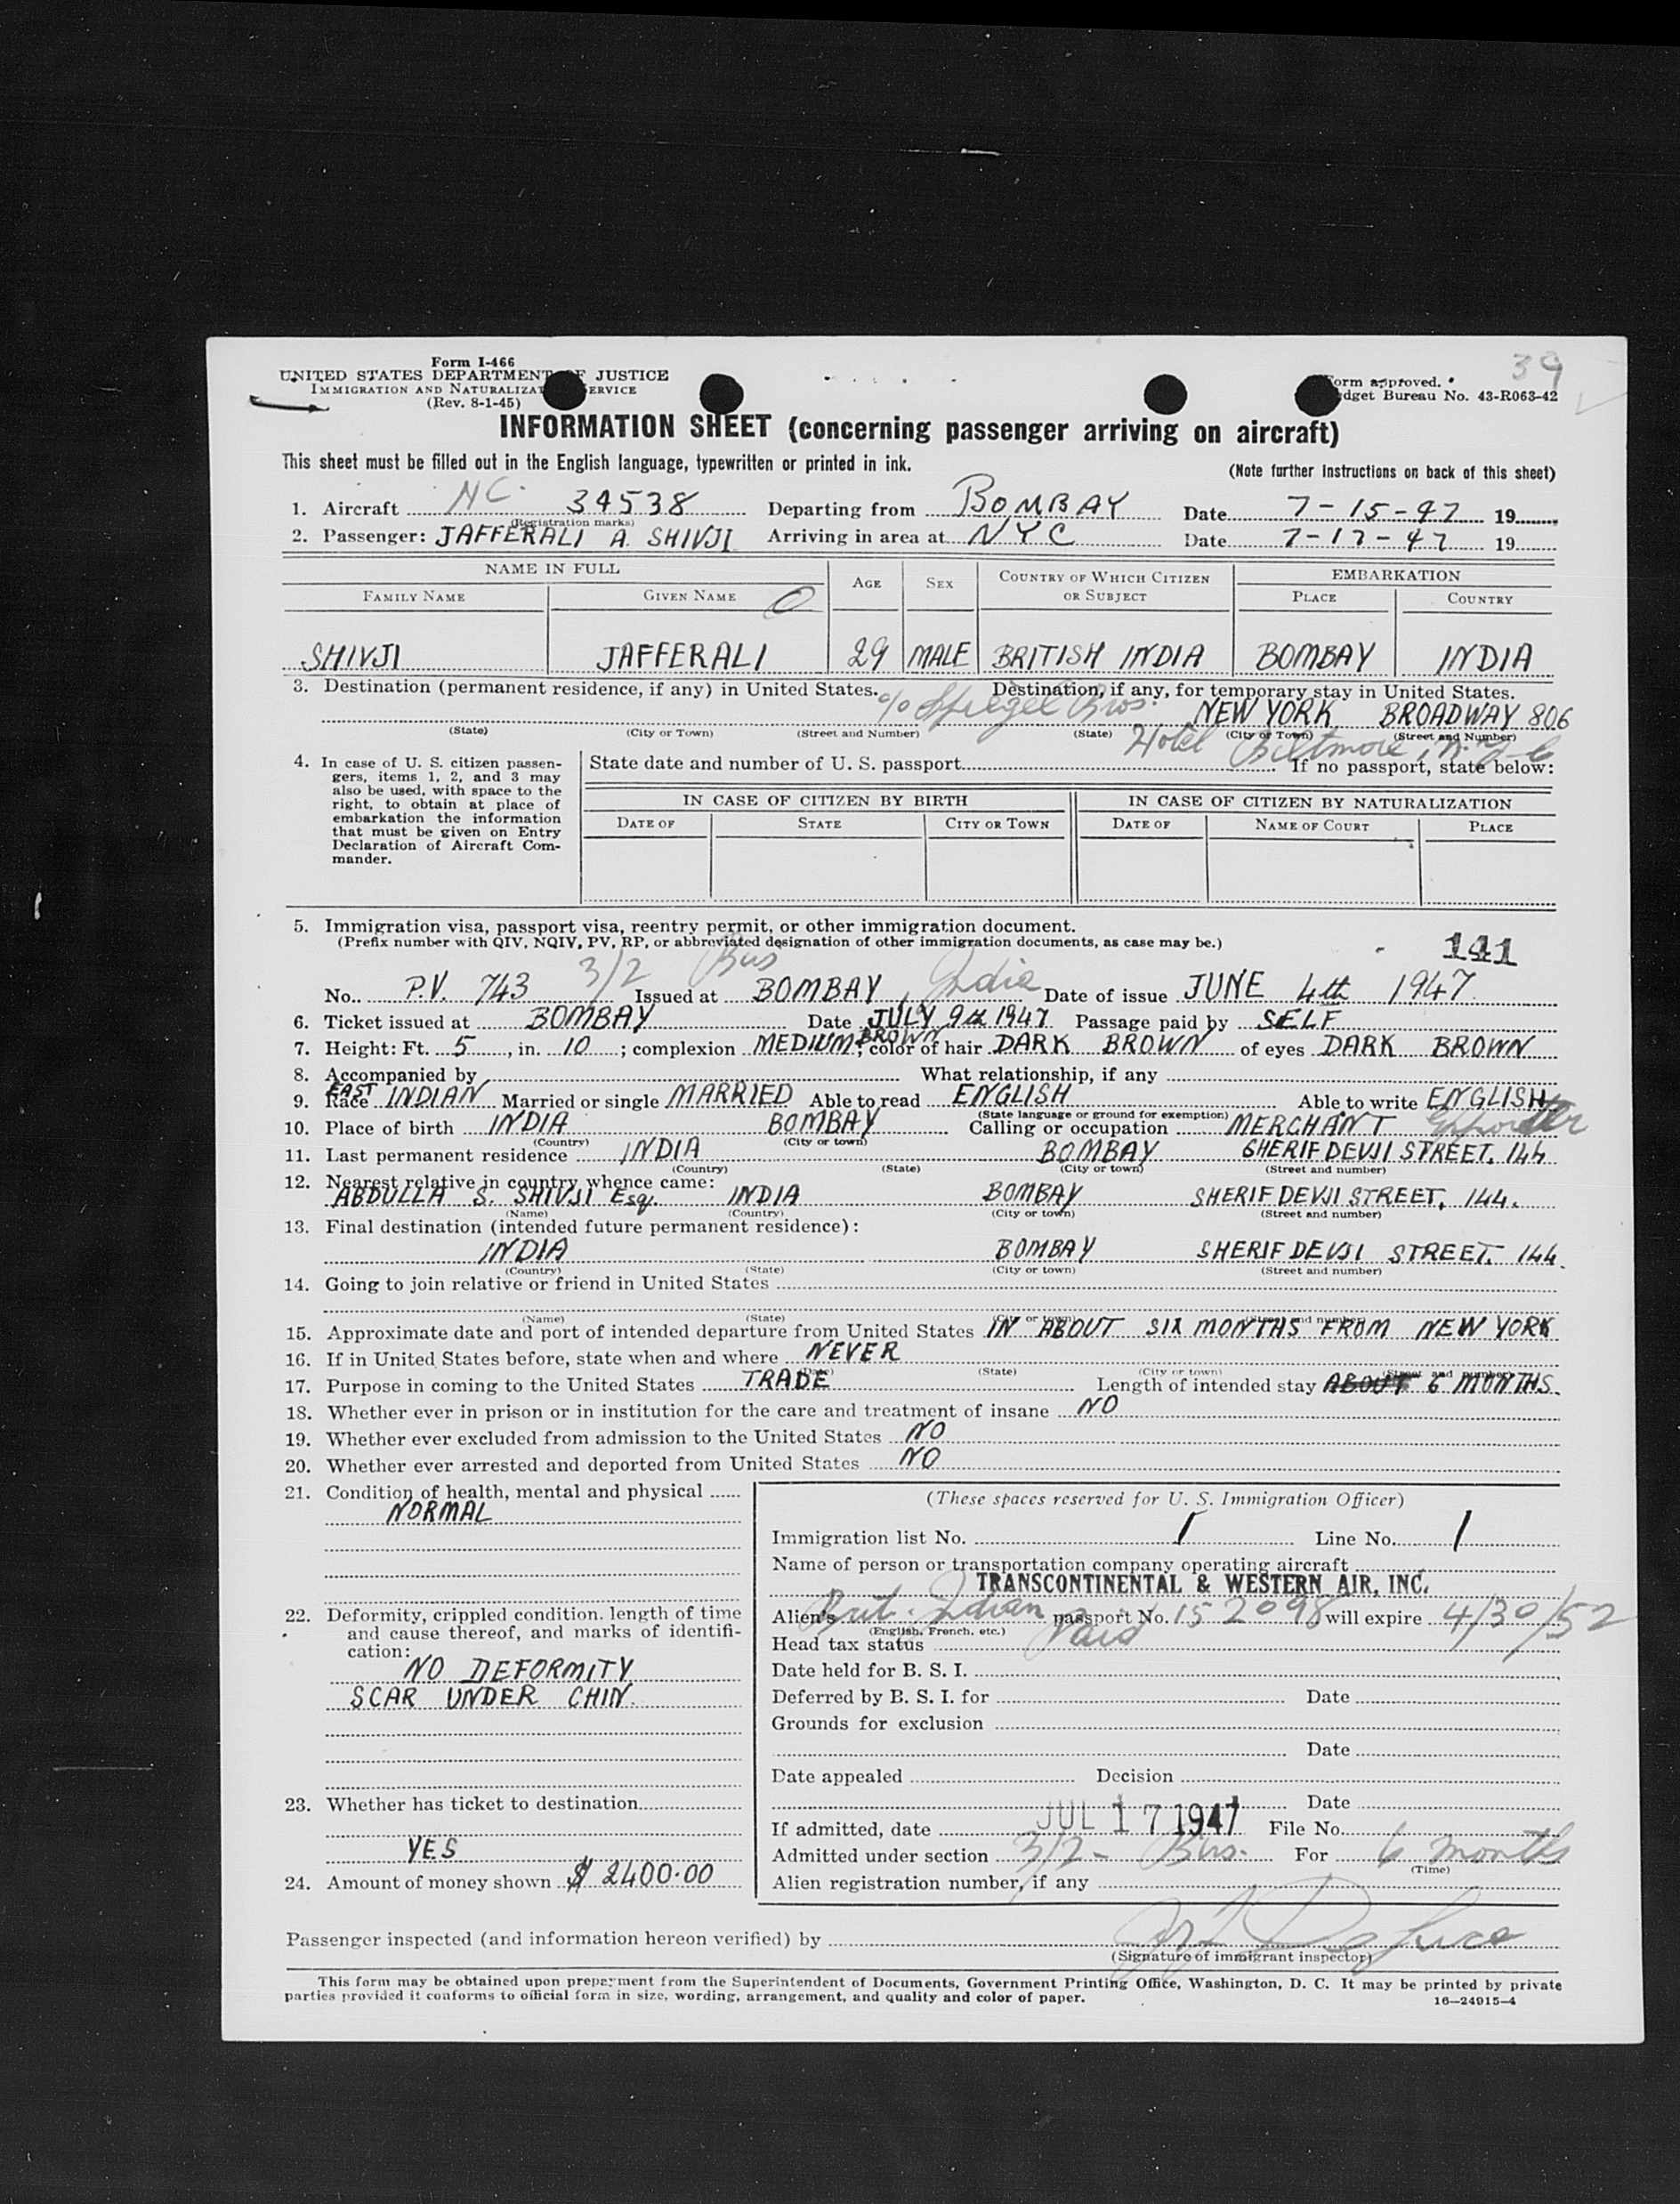 39
Form I-466
UNITED STATES DEPARTMENT OF JUSTICE
IMMIGRATION AND NATURALIZATION SERVICE
(Rev. 8-1-45)
Form approved.
Budget Bureau No. 43-R063-42
INFORMATION SHEET (concerning passenger arriving on aircraft)
This sheet must be filled out in the English language, typewritten or printed in ink.
(Note further instructions on back of this sheet)
1. Aircraft NC. 34538 Departing from BOMBAY Date 7-15-47 19
(Registration marks)
2. Passenger: JAFFERALI A. SHIVJI Arriving in area at NYC Date 7-17-47 19
NAME IN FULL AGE SEX COUNTRY OF WHICH CITIZEN OR SUBJECT EMBARKATION
FAMILY NAME GIVEN NAME PLACE COUNTRY
SHIVJI JAFFERALI 29 MALE BRITISH INDIA BOMBAY INDIA
3. Destination (permanent residence, if any) in United States. Destination, if any, for temporary stay in United States.
c/o Spiegel Bros. NEW YORK BROADWAY 806
(State) (City or Town) (Street and Number) (State) (City or Town) (Street and Number)
Hotel Biltmore, N.Y.C
4. In case of U. S. citizen passengers, items 1, 2, and 3 may also be used, with space to the right, to obtain at place of embarkation the information that must be given on Entry Declaration of Aircraft Commander.
State date and number of U. S. passport If no passport, state below:
IN CASE OF CITIZEN BY BIRTH IN CASE OF CITIZEN BY NATURALIZATION
DATE OF STATE CITY OR TOWN DATE OF NAME OF COURT PLACE
5. Immigration visa, passport visa, reentry permit, or other immigration document.
(Prefix number with QIV, NQIV, PV, RP, or abbreviated designation of other immigration documents, as case may be.)
141
No. P.V. 743 3/2 Bus Issued at BOMBAY, India Date of issue JUNE 4th 1947
6. Ticket issued at BOMBAY Date JULY 9th 1947 Passage paid by SELF
7. Height: Ft. 5, in. 10; complexion MEDIUM BROWN; color of hair DARK BROWN of eyes DARK BROWN
8. Accompanied by What relationship, if any
9. Race EAST INDIAN Married or single MARRIED Able to read ENGLISH Able to write ENGLISH
(State language or ground for exemption)
10. Place of birth INDIA BOMBAY Calling or occupation MERCHANT Exporter
(Country) (City or town)
11. Last permanent residence INDIA BOMBAY SHERIF DEVJI STREET, 144
(Country) (State) (City or town) (Street and number)
12. Nearest relative in country whence came:
ABDULLA S. SHIVJI Esq. INDIA BOMBAY SHERIF DEVJI STREET, 144.
(Name) (Country) (City or town) (Street and number)
13. Final destination (intended future permanent residence):
INDIA BOMBAY SHERIF DEVJI STREET, 144.
(Country) (State) (City or town) (Street and number)
14. Going to join relative or friend in United States
(Name) (State) (City or town) (Street and number)
15. Approximate date and port of intended departure from United States IN ABOUT SIX MONTHS FROM NEW YORK
16. If in United States before, state when and where NEVER
(Date) (State) (City or town) (Street and number)
17. Purpose in coming to the United States TRADE Length of intended stay ABOUT 6 MONTHS.
18. Whether ever in prison or in institution for the care and treatment of insane NO
19. Whether ever excluded from admission to the United States NO
20. Whether ever arrested and deported from United States NO
21. Condition of health, mental and physical
NORMAL
22. Deformity, crippled condition, length of time and cause thereof, and marks of identification:
NO DEFORMITY
SCAR UNDER CHIN.
23. Whether has ticket to destination
YES
24. Amount of money shown $ 2400.00
(These spaces reserved for U. S. Immigration Officer)
Immigration list No. 1 Line No. 1
Name of person or transportation company operating aircraft
TRANSCONTINENTAL & WESTERN AIR, INC.
Alien's Brit. Indian passport No. 152098 will expire 4/30/52
(English, French, etc.)
Head tax status Paid
Date held for B. S. I.
Deferred by B. S. I. for Date
Grounds for exclusion
Date
Date appealed Decision
Date
If admitted, date JUL 17 1947 File No.
Admitted under section 3/2 - Bus. For 6 months
(Time)
Alien registration number, if any
Passenger inspected (and information hereon verified) by
(Signature of immigrant inspector)
This form may be obtained upon prepayment from the Superintendent of Documents, Government Printing Office, Washington, D. C. It may be printed by private
parties provided it conforms to official form in size, wording, arrangement, and quality and color of paper.
16—24915-4